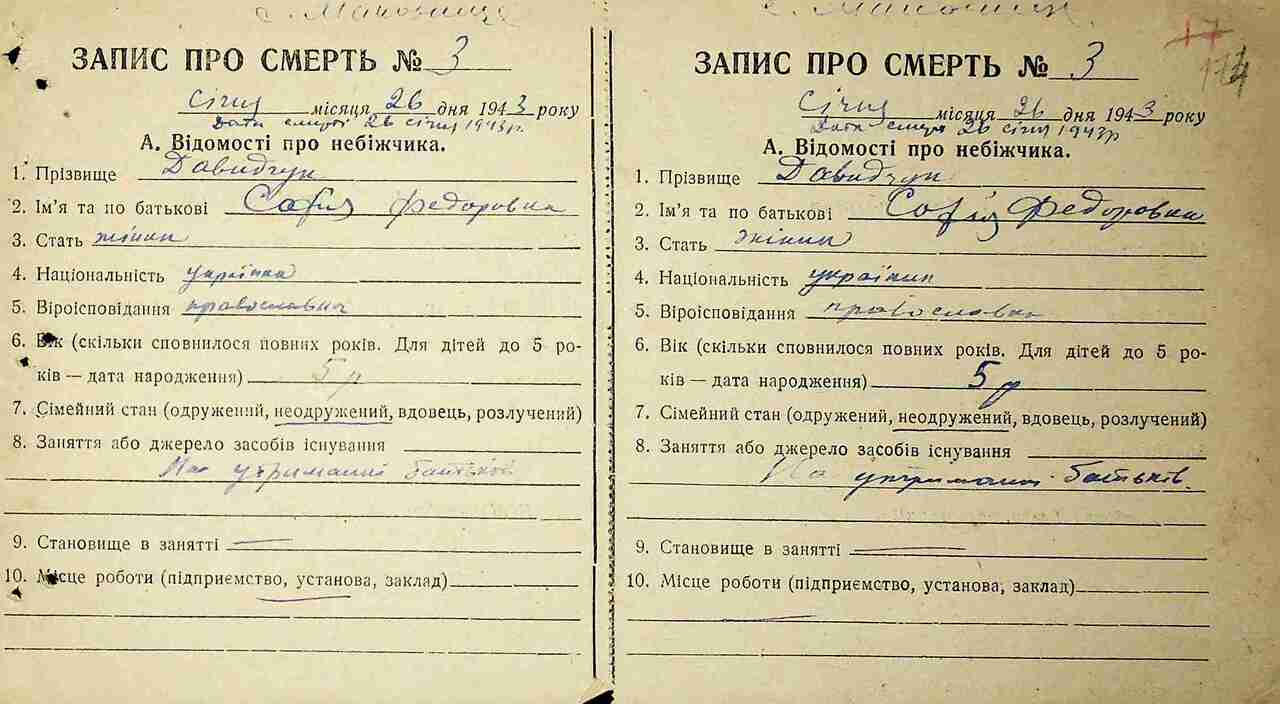 с. Маковище
ЗАПИС ПРО СМЕРТЬ № 3
Січня місяця 26 дня 1943 року
Дата смерті 26 січня 1943 р.
А. Відомості про небіжчика.
1. Прізвище Давидчук
2. Ім'я та по батькові Софія Федоровна
3. Стать жіноч
4. Національність українка
5. Віроісповідання православна
6. Вік (скільки сповнилося повних років. Для дітей до 5 ро-
ків — дата народження) 5 р
7. Сімейний стан (одружений, неодружений, вдовець, розлучений)
8. Заняття або джерело засобів існування
На утриманні батьків
9. Становище в занятті —
10. Місце роботи (підприємство, установа, заклад)
17
174
ЗАПИС ПРО СМЕРТЬ № 3
Січня місяця 26 дня 1943 року
Дата смерті 26 січня 1943 р
А. Відомості про небіжчика.
1. Прізвище Давидчук
2. Ім'я та по батькові Софія Федоровна
3. Стать жіноч
4. Національність українк
5. Віроісповідання православна
6. Вік (скільки сповнилося повних років. Для дітей до 5 ро-
ків — дата народження) 5 р
7. Сімейний стан (одружений, неодружений, вдовець, розлучений)
8. Заняття або джерело засобів існування
На утриманні батьків.
9. Становище в занятті —
10. Місце роботи (підприємство, установа, заклад)